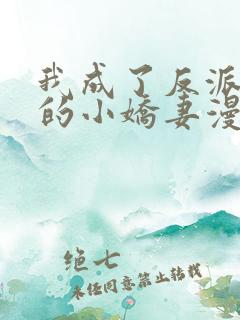 我成了反派
的小娇妻漫
绝七
未经同意禁止转载